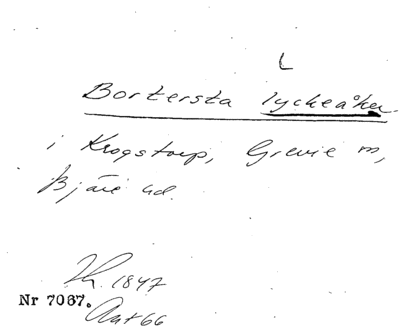 L
Bortersta lyckeåker
i Krogstorp, Grevie sn,
Bjäre hd.
Lh. 1847
Nr 7067.
Akt 66